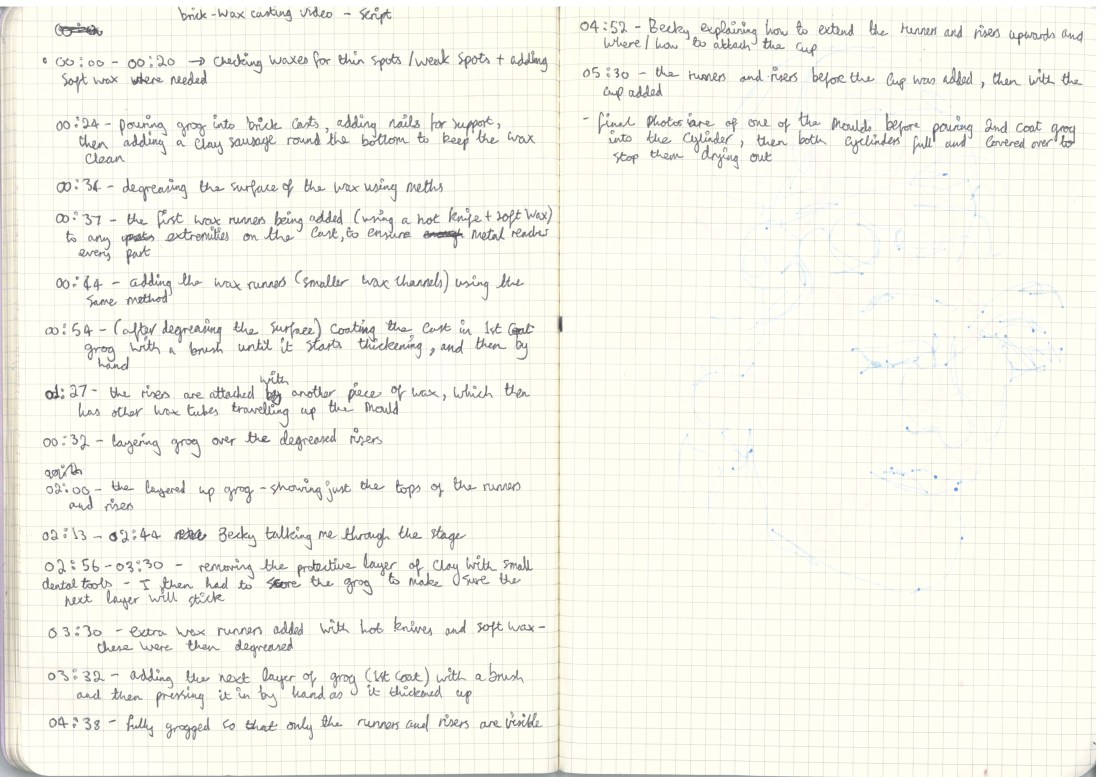 brick-wax casting video - script
• 00:00 - 00:20 → checking waxes for thin spots/weak spots + adding
soft wax where needed
00:24 - pouring grog into brick casts, adding nails for support,
then adding a clay sausage round the bottom to keep the wax
clean
00:34 - degreasing the surface of the wax using meths
00:37 - the first wax runners being added (using a hot knife + soft wax)
to any extremities on the cast, to ensure metal reaches
every part
00:44 - adding the wax runners (smaller wax channels) using the
same method
00:54 - (after degreasing the surface) coating the cast in 1st coat
grog with a brush until it starts thickening, and then by
hand
01:27 - the rises are attached with another piece of wax, which then
has other wax tubes travelling up the mould
00:32 - layering grog over the degreased risers
02:00 - the layered up grog - showing just the tops of the runners
and rises
02:13 - 02:44 Becky talking me through the stage
02:56 - 03:30 - removing the protective layer of clay with small
dental tools - I then had to score the grog to make sure the
next layer will stick
03:30 - extra wax runners added with hot knives and soft wax -
these were then degreased
03:32 - adding the next layer of grog (1st coat) with a brush
and then pressing it in by hand as it thickened up
04:38 - fully grogged so that only the runners and risers are visible
04:52 - Becky explaining how to extend the runners and risers upwards and
where/how to attach the cup
05:30 - the runners and risers before the cup was added, then with the
cup added
- final photos are of one of the moulds before pouring 2nd coat grog
into the cylinder, then both cylinders full and covered over to
stop them drying out